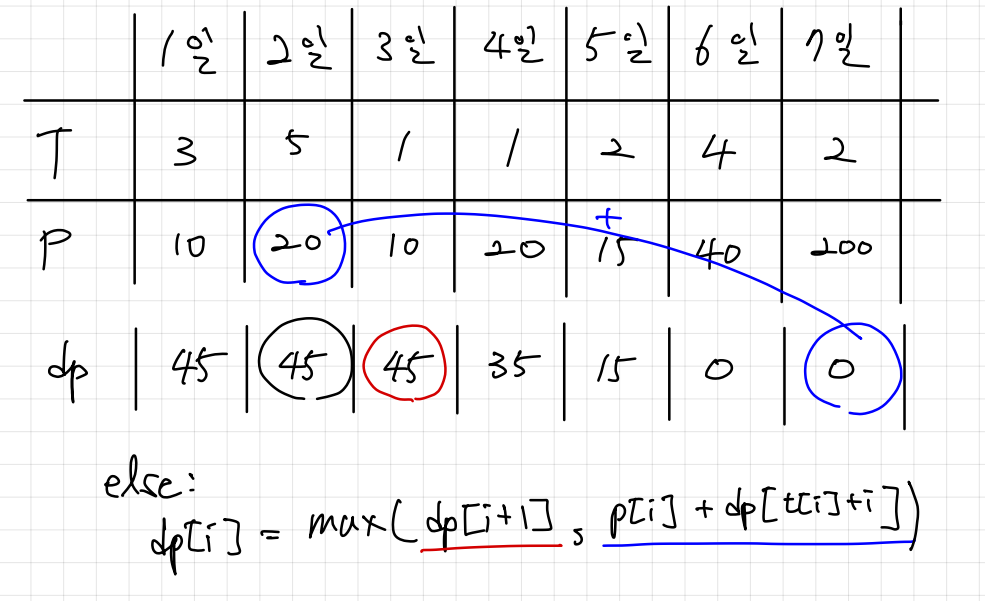 1일 2일 3일 4일 5일 6일 7일
T 3 5 1 1 2 4 2
+
P 10 20 10 20 15 40 200
dp 45 45 45 35 15 0 0
else:
dp[i] = max( dp[i+1] , p[i] + dp[t[i]+i] )